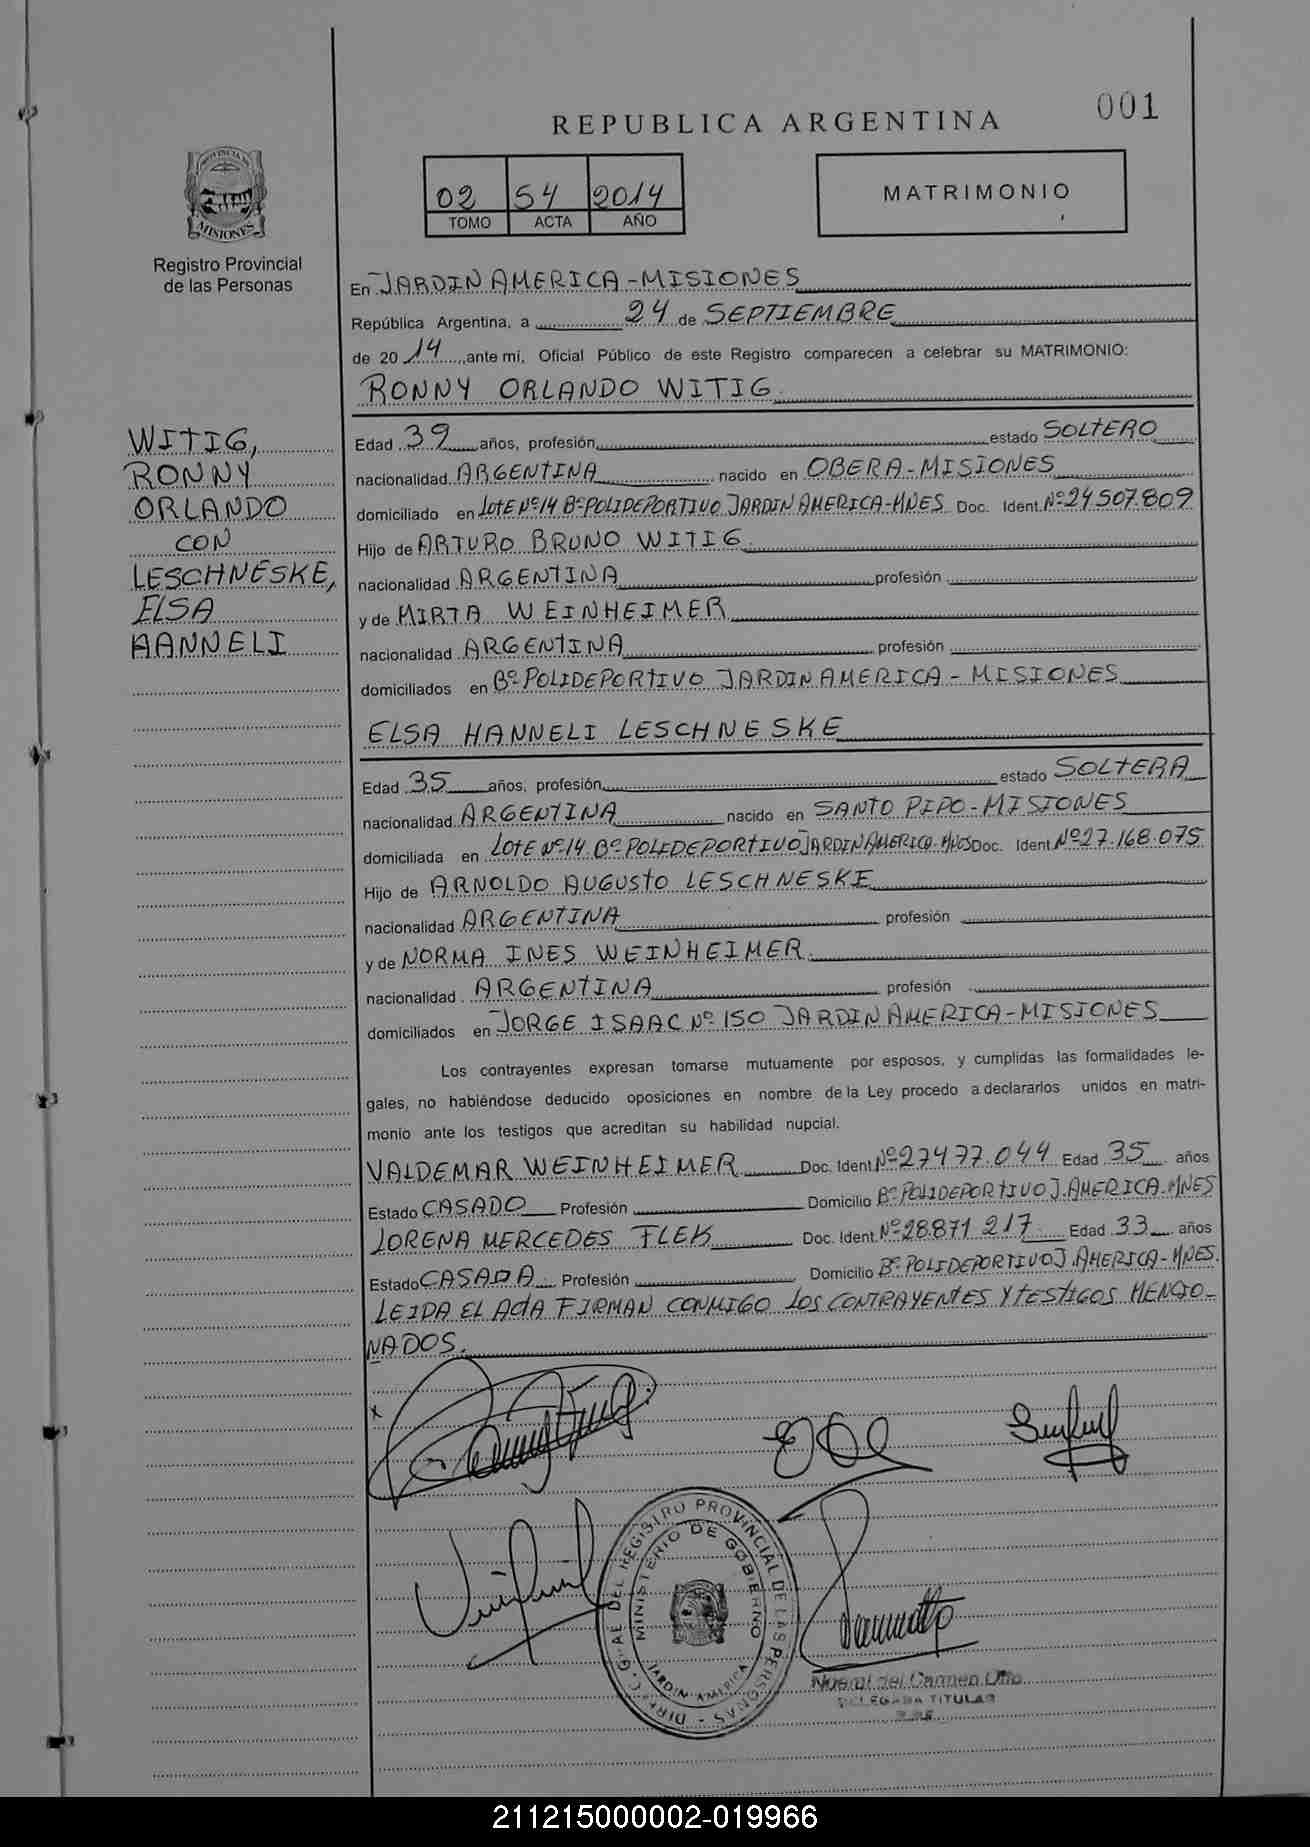 001
REPUBLICA ARGENTINA
PROVINCIA DE
MISIONES
Registro Provincial
de las Personas
02 54 2014
TOMO ACTA AÑO
MATRIMONIO
En JARDIN AMERICA-MISIONES
República Argentina, a 24 de SEPTIEMBRE
de 2014, ante mi, Oficial Público de este Registro comparecen a celebrar su MATRIMONIO:
RONNY ORLANDO WITIG
WITIG,
RONNY
ORLANDO
CON
LESCHNESKE,
ELSA
HANNELI
Edad 39 años, profesión estado SOLTERO
nacionalidad ARGENTINA nacido en OBERA-MISIONES
domiciliado en LOTE Nº14 Bº POLIDEPORTIVO JARDIN AMERICA-MNES Doc. Ident. Nº24507.809
Hijo de ARTURO BRUNO WITIG
nacionalidad ARGENTINA profesión
y de MIRTA WEINHEIMER
nacionalidad ARGENTINA profesión
domiciliados en Bº POLIDEPORTIVO JARDIN AMERICA - MISIONES
ELSA HANNELI LESCHNESKE
Edad 35 años, profesión estado SOLTERA
nacionalidad ARGENTINA nacido en SANTO PIPO-MISIONES
domiciliada en LOTE Nº14 Bº POLIDEPORTIVO JARDIN AMERICA-MNES Doc. Ident. Nº27.168.075
Hijo de ARNOLDO AUGUSTO LESCHNESKE
nacionalidad ARGENTINA profesión
y de NORMA INES WEINHEIMER
nacionalidad ARGENTINA profesión
domiciliados en JORGE ISAAC Nº 150 JARDIN AMERICA-MISIONES
Los contrayentes expresan tomarse mutuamente por esposos, y cumplidas las formalidades le-
gales, no habiéndose deducido oposiciones en nombre de la Ley procedo a declararlos unidos en matri-
monio ante los testigos que acreditan su habilidad nupcial.
VALDEMAR WEINHEIMER Doc. Ident. Nº27477.044 Edad 35 años
Estado CASADO Profesión Domicilio Bº POLIDEPORTIVO J. AMERICA-MNES
LORENA MERCEDES FLEK Doc. Ident. Nº28.871 217 Edad 33 años
Estado CASADA Profesión Domicilio Bº POLIDEPORTIVO J. AMERICA-MNES.
LEIDA EL ACTA FIRMAN CONMIGO LOS CONTRAYENTES Y TESTIGOS MENCIO-
NADOS.
x
DIREC. GRAL DEL REGISTRO PROVINCIAL DE LAS PERSONAS -
MINISTERIO DE GOBIERNO
JARDIN AMERICA
del Carmen Otto
DELEGADA TITULAR
211215000002-019966